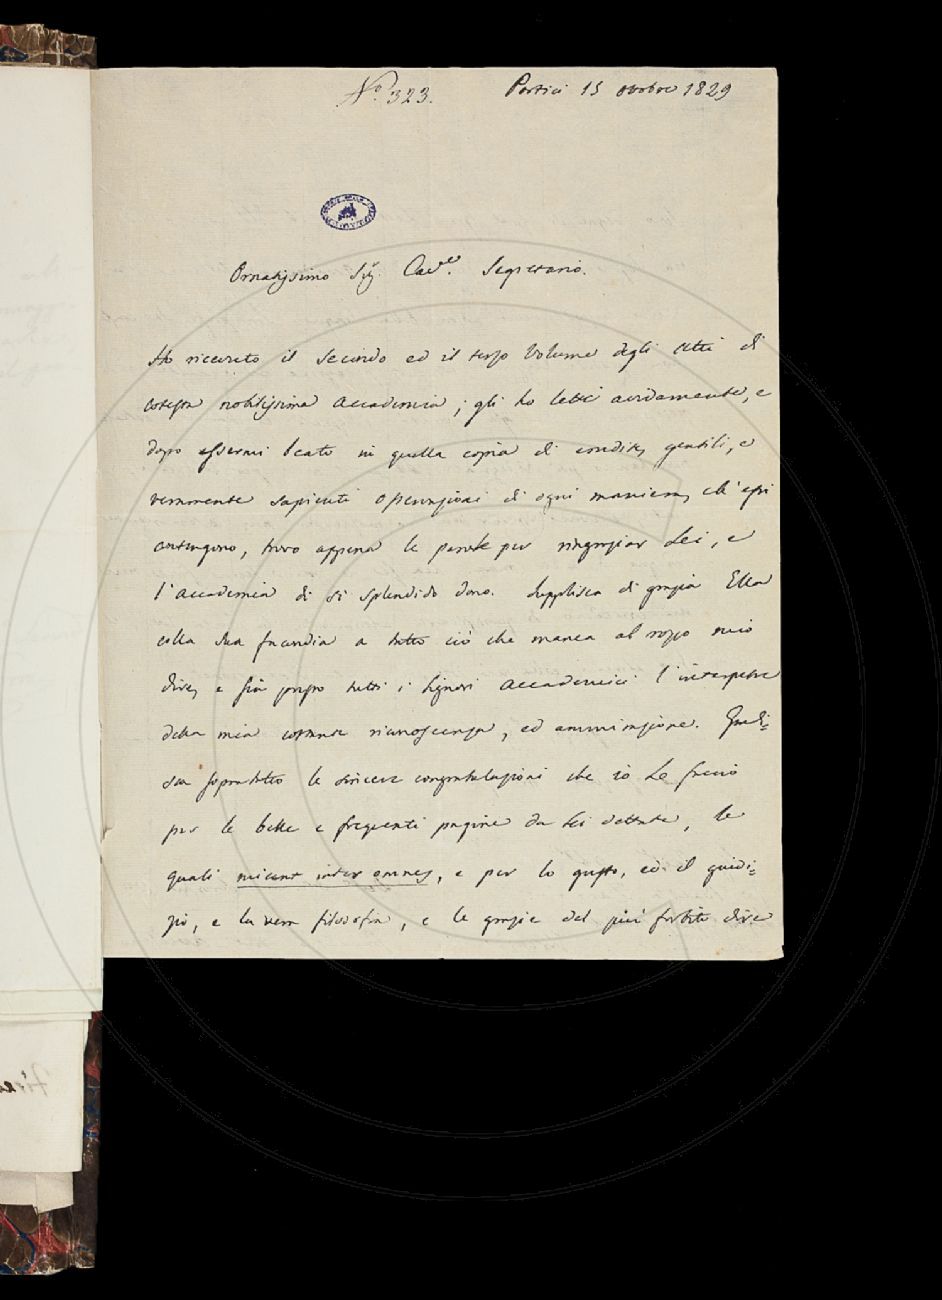 N.º 323.
Portici 15 ottobre 1829
Ornatissimo Sig.r Cav.re Segretario.
Ho ricevuto il secondo ed il terzo volume degli Atti di
cotesta nobilissima Accademia; gli ho letti avidamente, e
dopo essermi beato in quella copia di erudite, gentili, e
veramente sapienti osservazioni di ogni maniera, ch'essi
contengono, trovo appena le parole per ringraziar Lei, e
l'Accademia di sì splendido dono. Supplisca di grazia Ella
colla sua facundia a tutto ciò che manca al rozzo mio
dire, e sia presso tutti i Signori Accademici l'interprete
della mia costante riconoscenza, ed ammirazione. Gradi=
sca soprattutto le sincere congratulazioni che io Le faccio
per le belle e frequenti pagine da Lei dettate, le
quali micant inter omnes, e per lo gusto, ed il giudi=
zio, e la vera filosofia, e le grazie del più forbito dire